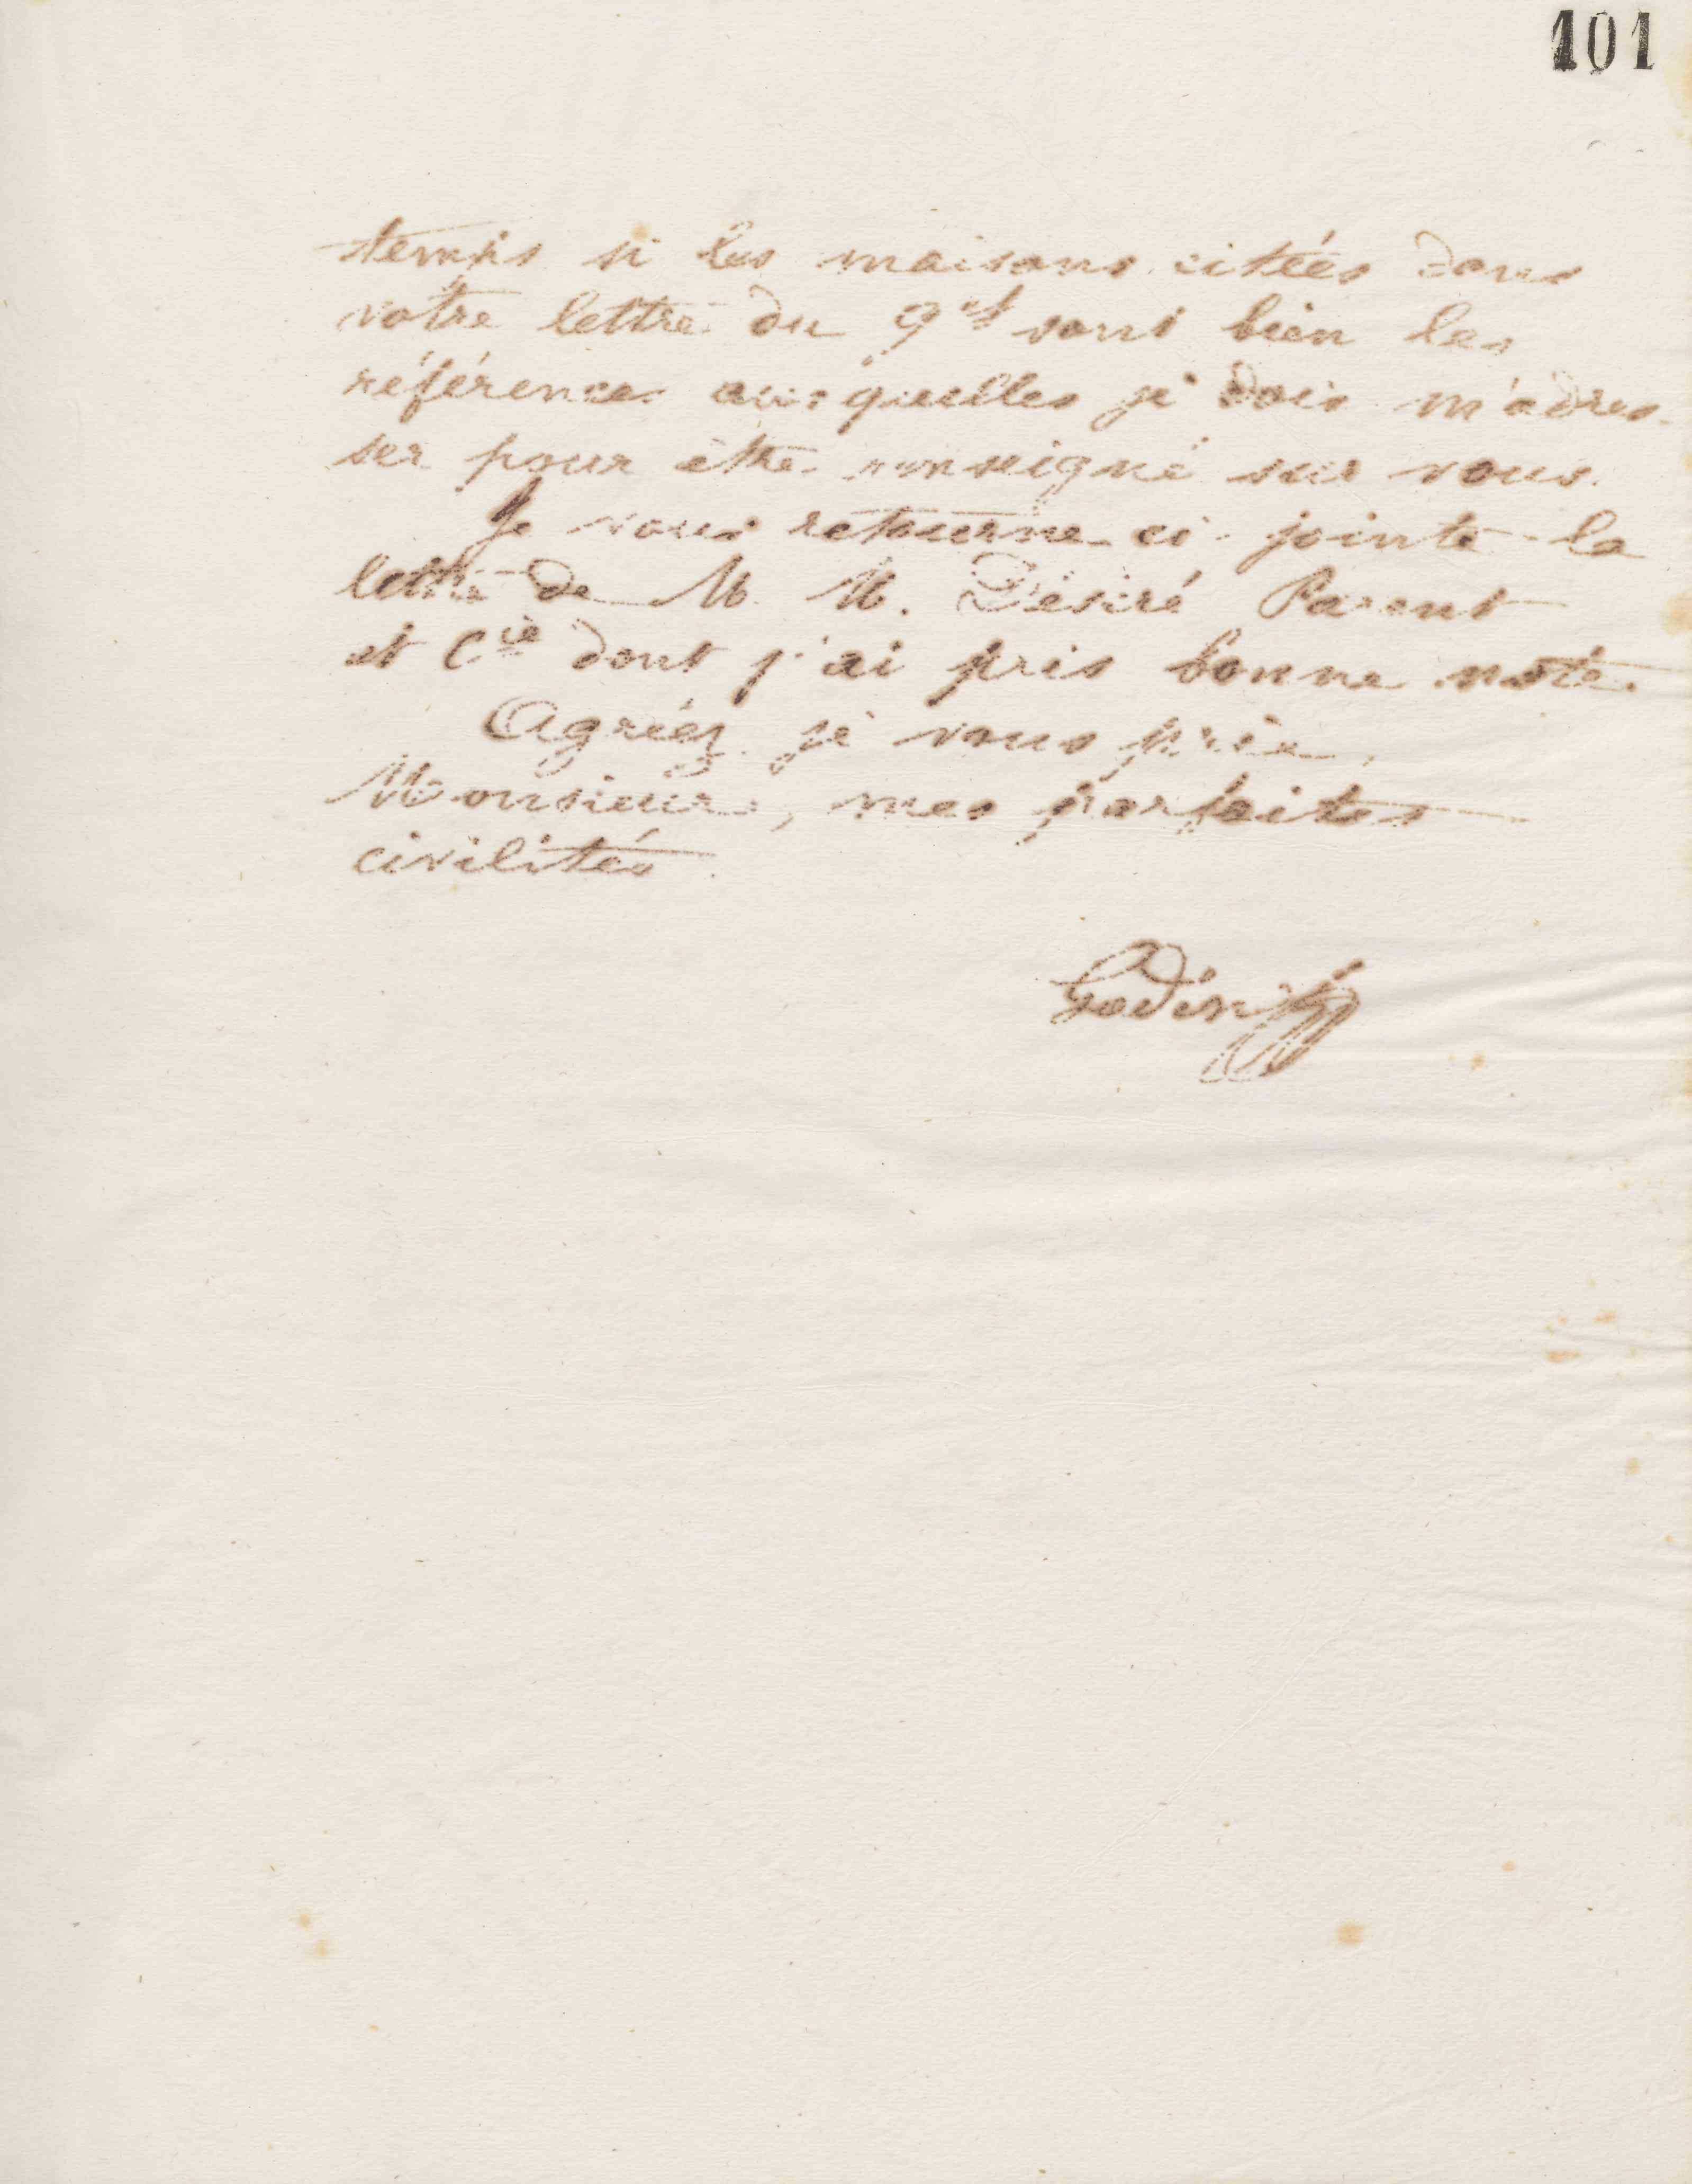 101
temps si les maisons citées dans
votre lettre du 9 ct sont bien les
références auxquelles je dois m'adres-
ser pour être renseigné sur vous.
Je vous retourne ci-jointe la
lettre de M. M. Désiré Parent
et Cie dont j'ai pris bonne note.
Agréez je vous prie,
Monsieur, mes parfaites
civilités.
Godin